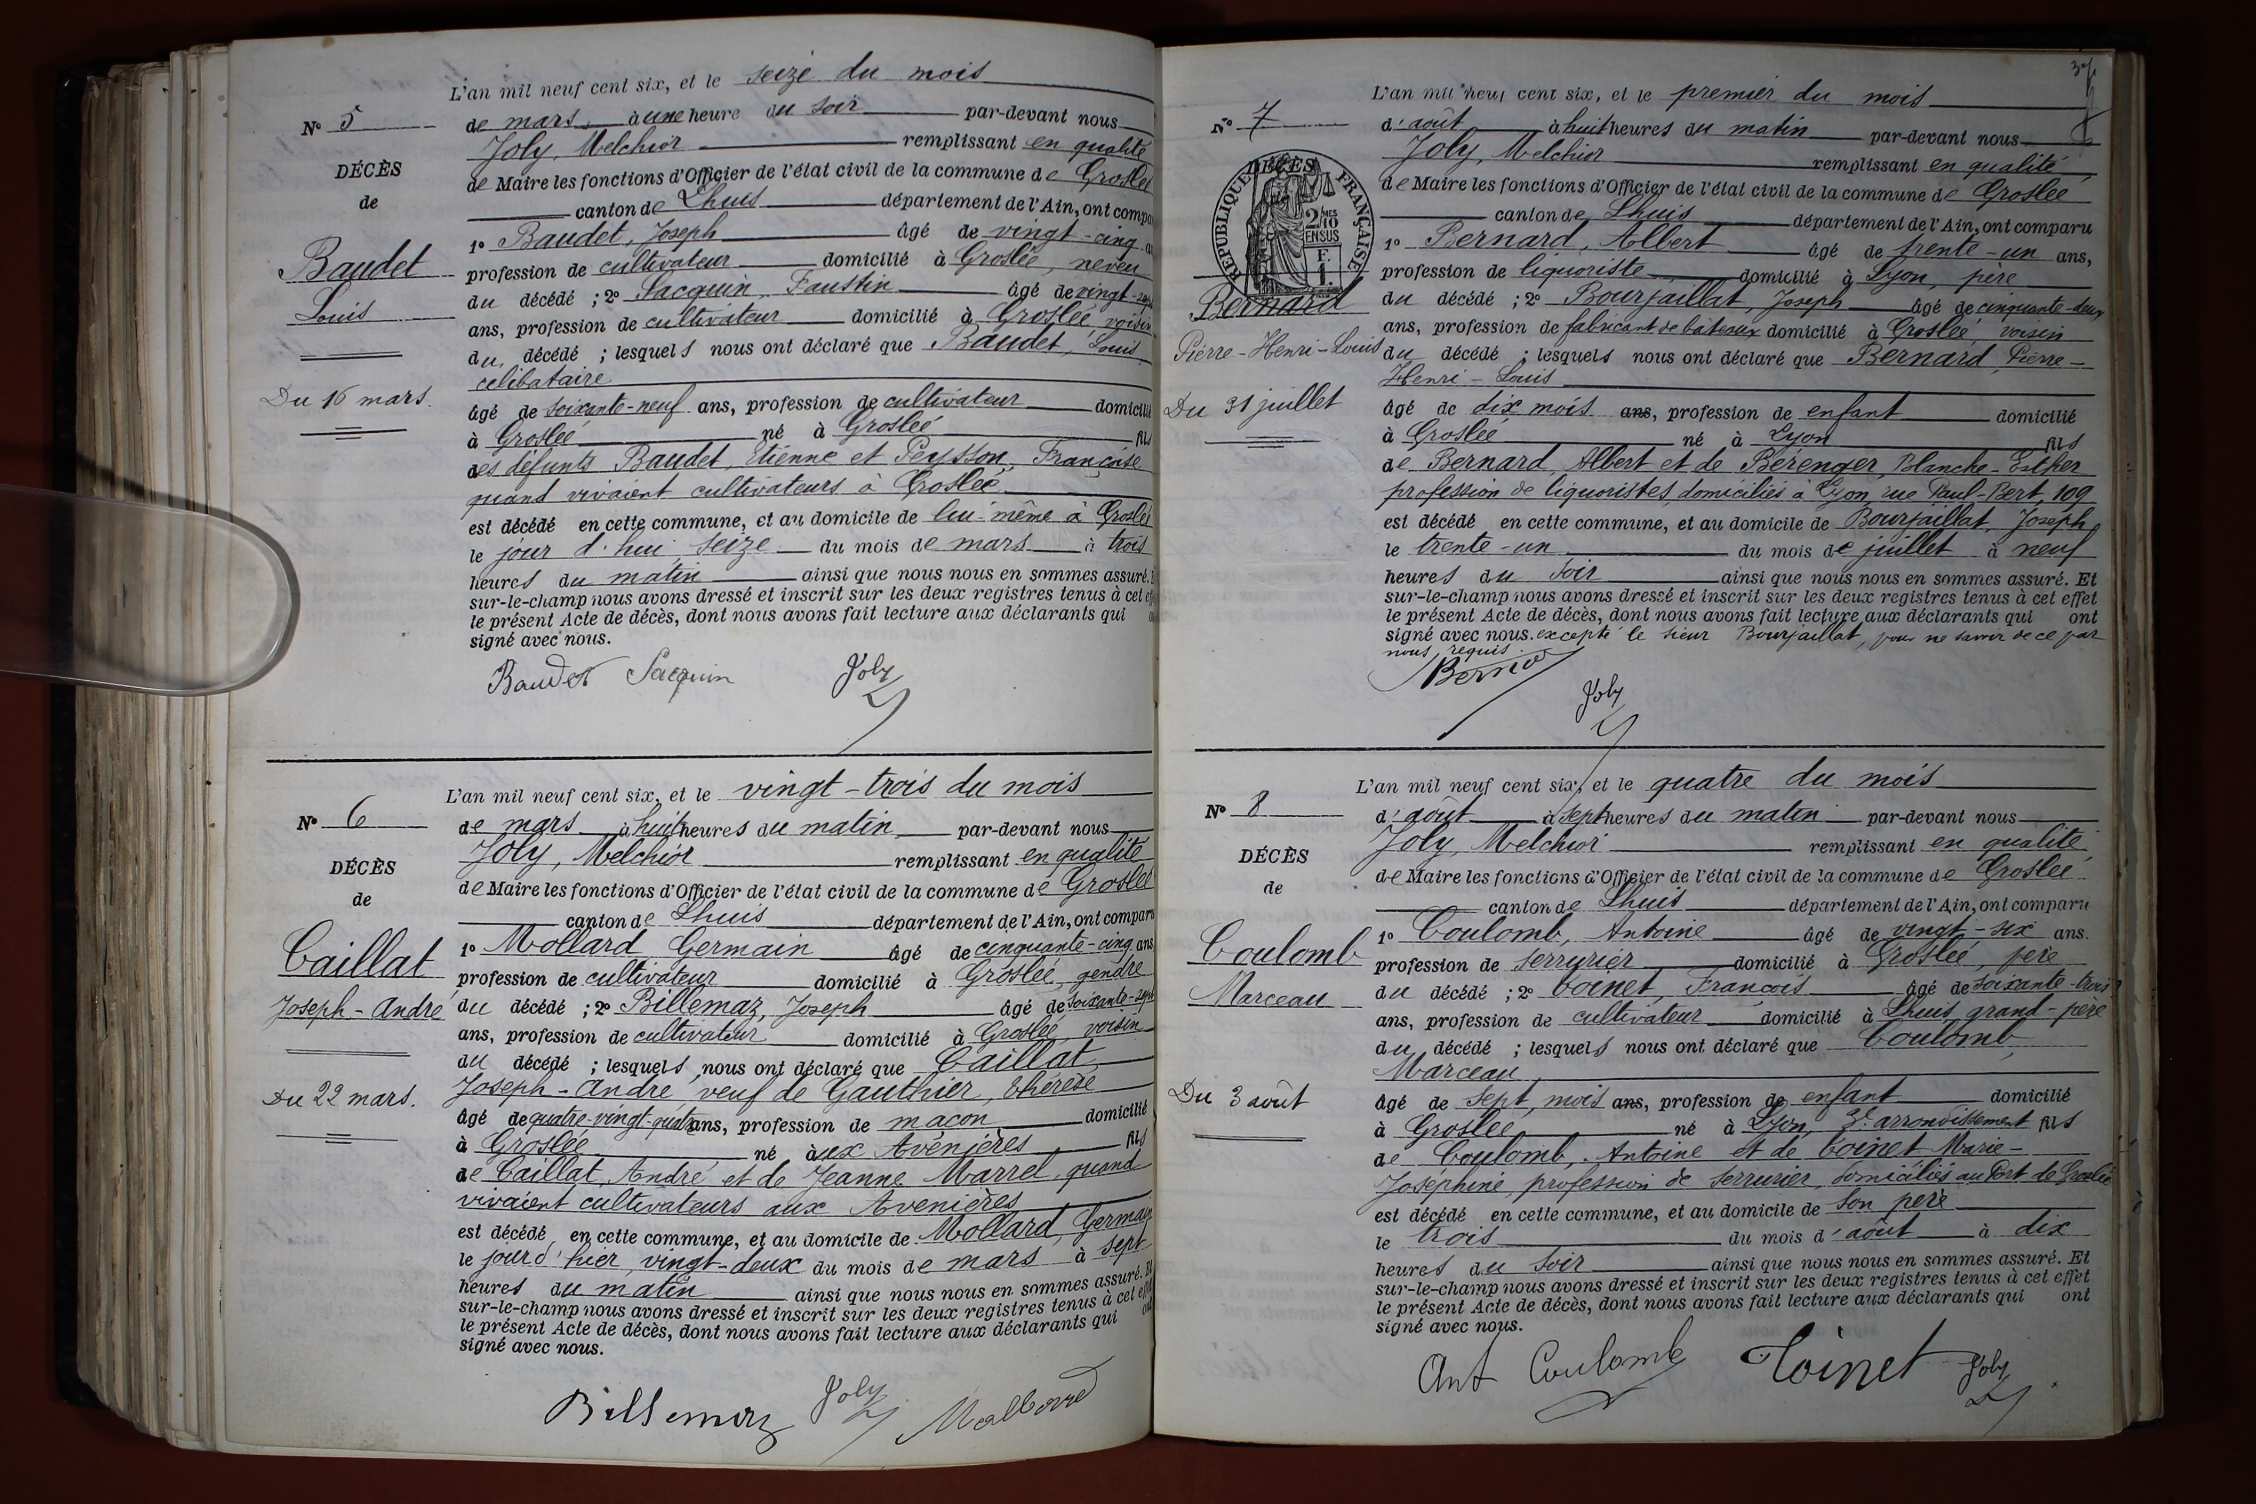 L'an mil neuf cent six, et le seize du mois
N° 5
de mars, à une heure du soir par-devant nous
Joly, Melchior remplissant en qualité
DÉCÈS
de Maire les fonctions d'Officier de l'état civil de la commune de Groslée
de
canton de Lhuis département de l'Ain, ont comparu
1° Baudet, Joseph âgé de vingt-cinq
Baudet
profession de cultivateur domicilié à Groslée, neveu
Louis
du décédé ; 2° Sacquin, Faustin âgé de vingt-
ans, profession de cultivateur domicilié à Groslée, voisin
du décédé ; lesquels nous ont déclaré que Baudet, Louis
célibataire
Du 16 mars.
âgé de soixante-neuf ans, profession de cultivateur domicilié
à Groslée né à Groslée fils
des défunts Baudet, Etienne et Peysson, Françoise
quand vivaient cultivateurs à Groslée
est décédé en cette commune, et au domicile de lui-même à Groslée
le jour d'hui seize du mois de mars à trois
heures du matin ainsi que nous nous en sommes assuré.
sur-le-champ nous avons dressé et inscrit sur les deux registres tenus à cet
le présent Acte de décès, dont nous avons fait lecture aux déclarants qui
signé avec nous.
Baudet Sacquin Joly
L'an mil neuf cent six, et le vingt-trois du mois
N° 6
de mars à huit heures du matin par-devant nous
Joly, Melchior remplissant en qualité
DÉCÈS
de Maire les fonctions d'Officier de l'état civil de la commune de Groslée
de
canton de Lhuis département de l'Ain, ont comparu
1° Mollard Germain âgé de cinquante-cinq ans
Caillat
profession de cultivateur domicilié à Groslée, gendre
Joseph-André
du décédé ; 2° Billemaz, Joseph âgé de soixante-sept
ans, profession de cultivateur domicilié à Groslée, voisin
du décédé ; lesquels nous ont déclaré que Caillat,
Joseph-André, veuf de Gauthier, Thérèse
Du 22 mars.
âgé de quatre-vingt-quatre ans, profession de maçon domicilié
à Groslée né aux Avenières fils
de Caillat, André et de Jeanne Marrel, quand
vivaient cultivateurs aux Avenières
est décédé en cette commune, et au domicile de Mollard, Germain
le jour d'hier, vingt-deux du mois de mars à sept
heures du matin ainsi que nous nous en sommes assuré. Et
sur-le-champ nous avons dressé et inscrit sur les deux registres tenus à cet effet
le présent Acte de décès, dont nous avons fait lecture aux déclarants qui ont
signé avec nous.
Billemaz Joly Mollard
37
L'an mil neuf cent six, et le premier du mois
N° 7
d'août à huit heures du matin par-devant nous
Joly, Melchior remplissant en qualité
DÉCÈS
RÉPUBLIQUE FRANÇAISE
2/10 MES EN SUS
F.
1.
de Maire les fonctions d'Officier de l'état civil de la commune de Groslée
canton de Lhuis département de l'Ain, ont comparu
1° Bernard, Albert âgé de trente-un ans,
profession de liquoriste domicilié à Lyon, père
Bernard
du décédé ; 2° Bourjaillat, Joseph âgé de cinquante-deux
ans, profession de fabricant de bateaux domicilié à Groslée, voisin
Pierre-Henri-Louis
du décédé ; lesquels nous ont déclaré que Bernard, Pierre-
Henri-Louis
Du 31 juillet
âgé de dix mois ans, profession de enfant domicilié
à Groslée né à Lyon fils
de Bernard, Albert et de Bérenger, Blanche-Esther
profession de liquoristes, domiciliés à Lyon rue Paul-Bert, 109
est décédé en cette commune, et au domicile de Bourjaillat, Joseph
le trente-un du mois de juillet à neuf
heures du soir ainsi que nous nous en sommes assuré. Et
sur-le-champ nous avons dressé et inscrit sur les deux registres tenus à cet effet
le présent Acte de décès, dont nous avons fait lecture aux déclarants qui ont
signé avec nous. excepté le sieur Bourjaillat, pour ne savoir de ce par
nous requis.
Joly
L'an mil neuf cent six, et le quatre du mois
N° 8
d'août à sept heures du matin par-devant nous
Joly, Melchior remplissant en qualité
DÉCÈS
de Maire les fonctions d'Officier de l'état civil de la commune de Groslée
de
canton de Lhuis département de l'Ain, ont comparu
1° Coulomb, Antoine âgé de vingt-six ans.
Coulomb
profession de serrurier domicilié à Groslée, père
Marceau
du décédé ; 2° Toinet, François âgé de soixante-trois
ans, profession de cultivateur domicilié à Lhuis, grand-père
du décédé ; lesquels nous ont déclaré que Coulomb,
Marceau
Du 3 août
âgé de sept mois ans, profession de enfant domicilié
à Groslée né à Lyon, 3e arrondissement fils
de Coulomb, Antoine et de Toinet Marie-
Joséphine, profession de serrurier, domiciliés au Port de Groslée
est décédé en cette commune, et au domicile de son père
le trois du mois d'août à dix
heures du soir ainsi que nous nous en sommes assuré. Et
sur-le-champ nous avons dressé et inscrit sur les deux registres tenus à cet effet
le présent Acte de décès, dont nous avons fait lecture aux déclarants qui ont
signé avec nous.
Ant Coulomb Toinet Joly